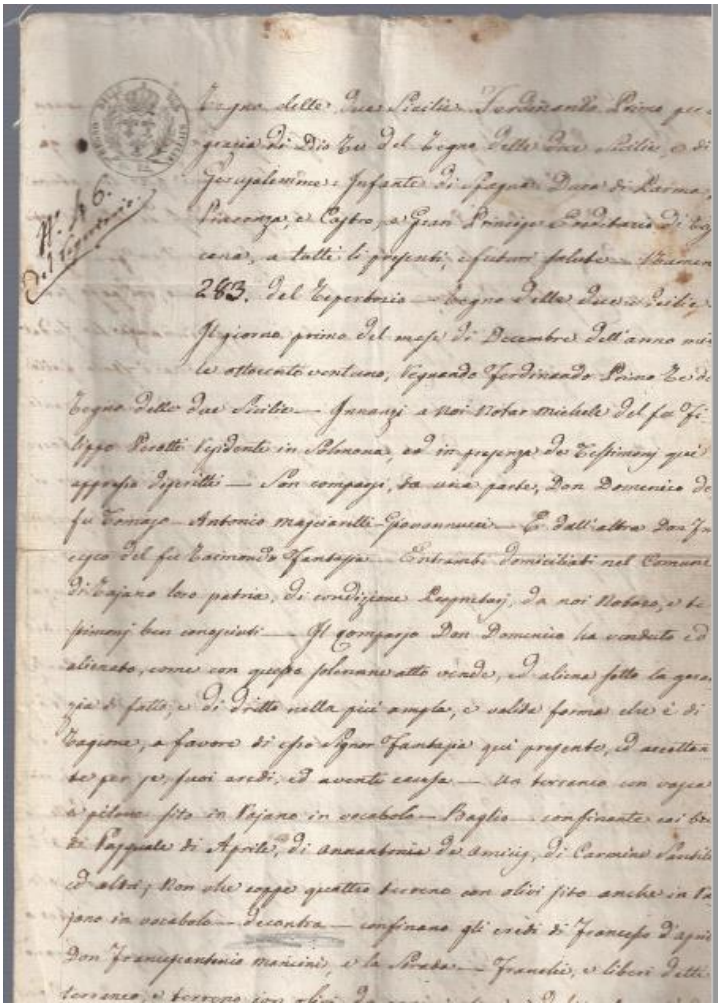 N.° 46.
del Repertorio
Regno delle due Sicilie. Ferdinando Primo per
grazia di Dio Re del Regno delle due Sicilie, e di
Gerusalemme, Infante di Spagna Duca di Parma,
Piacenza, e Castro, e Gran Principe Ereditario di Tos
cana, a tutti li presenti, e futuri salute — Numer
283. del Repertorio — Regno delle due Sicilie
Il giorno primo del mese di Decembre dell'anno mil
le ottocento ventuno, regnando Ferdinando Primo Re de
Regno delle due Sicilie — Innanzi a noi Notar Michele del fu Fi
lippo residente in Solmona, ed in presenza de Testimonj qui
appresso descritti — Son comparsi, da una parte, Don Domenico de
fu Tomaso Antonio Masciarelli Giovannucci — E dall'altra Don
del fu Raimondo Fantasia — Entrambi domiciliati nel Comune
di Rajano loro patria, di condizione Proprietarj, da noi Notaro, e te
stimonj ben conosciuti — Il comparso Don Domenico ha venduto ed
alienato, come con questo solenne atto vende, ed aliena sotto la garan
zia di fatto, e di dritto nella più ampla, e valida forma che è di
Ragione, a favore di esso Signor Fantasia qui presente, ed accettan
te per se, suoi eredi, ed aventi causa — Un terraneo con vasca
e pilone sito in Rajano in vocabolo — Baglio — confinante coi be
di Pasquale di Aprile, di Annantonia de Amicis, di Carmine
ed altri; Non che coppe quattro terreno con olivi sito anche in Ra
jano in vocabolo — decontra — confinano gli eredi di Francesco d'Apri
Don Francescantonio Mancini, e la Strada — Franchi, e liberi detti
terraneo, e terreno con olivi da